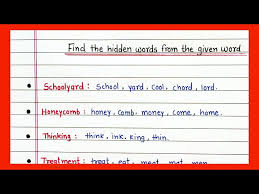 Find the hidden words from the given word
Schoolyard : School, yard, Cool, chord, lord.
Honeycomb : honey, Comb, money, Come, home.
Thinking : think, ink, King, thin.
Treatment : treat, eat, meat, mat, man